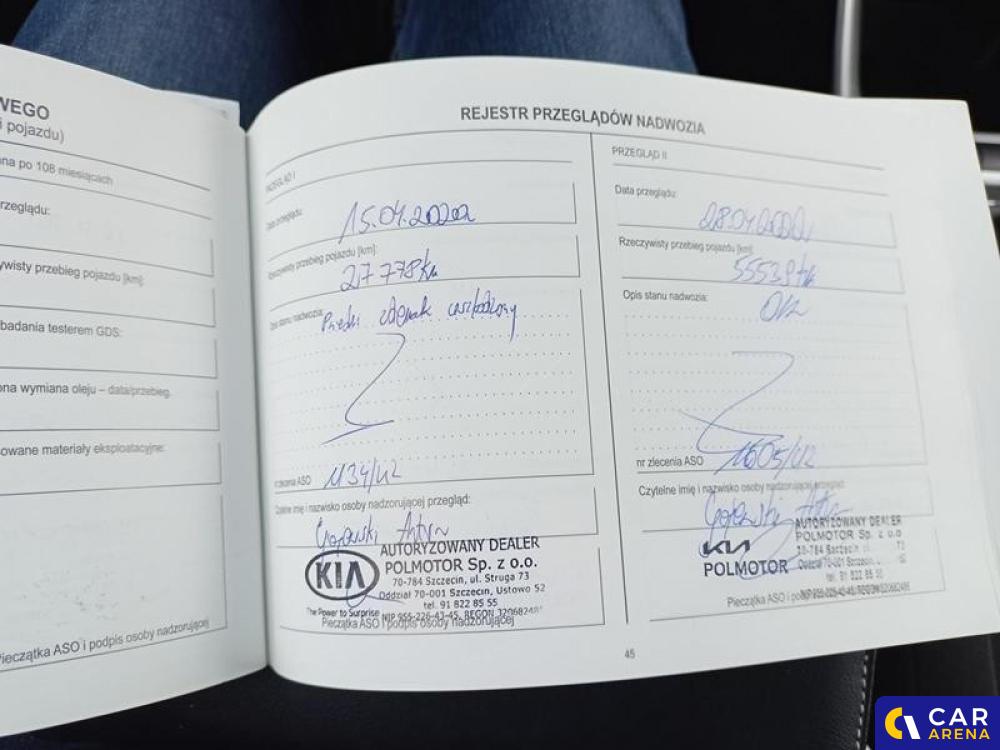 WEGO
i pojazdu)
ona po 108 miesiącach
rzeglądu:
wisty przebieg pojazdu [km]:
badania testerem GDS:
ona wymiana oleju – data/przebieg.
sowane materiały eksploatacyjne:
Pieczątka ASO i podpis osoby nadzorującej
REJESTR PRZEGLĄDÓW NADWOZIA
PRZEGLĄD I
Data przeglądu:
15.04.2022
Rzeczywisty przebieg pojazdu [km]:
27 778 km
Opis stanu nadwozia:
zderzak uszkodzony
nr zlecenia ASO
1134/U2
Czytelne imię i nazwisko osoby nadzorującej przegląd:
KIA
The Power to Surprise
AUTORYZOWANY DEALER
POLMOTOR Sp. z o.o.
70-784 Szczecin, ul. Struga 73
Oddział 70-001 Szczecin, Ustowo 52
tel. 91 822 85 55
NIP 955-226-43-45, REGON
Pieczątka ASO i podpis osoby nadzorującej
PRZEGLĄD II
Data przeglądu:
28.04.
Rzeczywisty przebieg pojazdu [km]:
km
Opis stanu nadwozia:
nr zlecenia ASO
1605/U2
Czytelne imię i nazwisko osoby nadzorującej przegląd:
KIA
POLMOTOR
AUTORYZOWANY DEALER
POLMOTOR Sp. z o.o.
70-784 Szczecin
Oddział 70-001 Szczecin
tel. 91 822 85
NIP 955-226-43-45, REGON
Pieczątka ASO i
45
CAR
ARENA